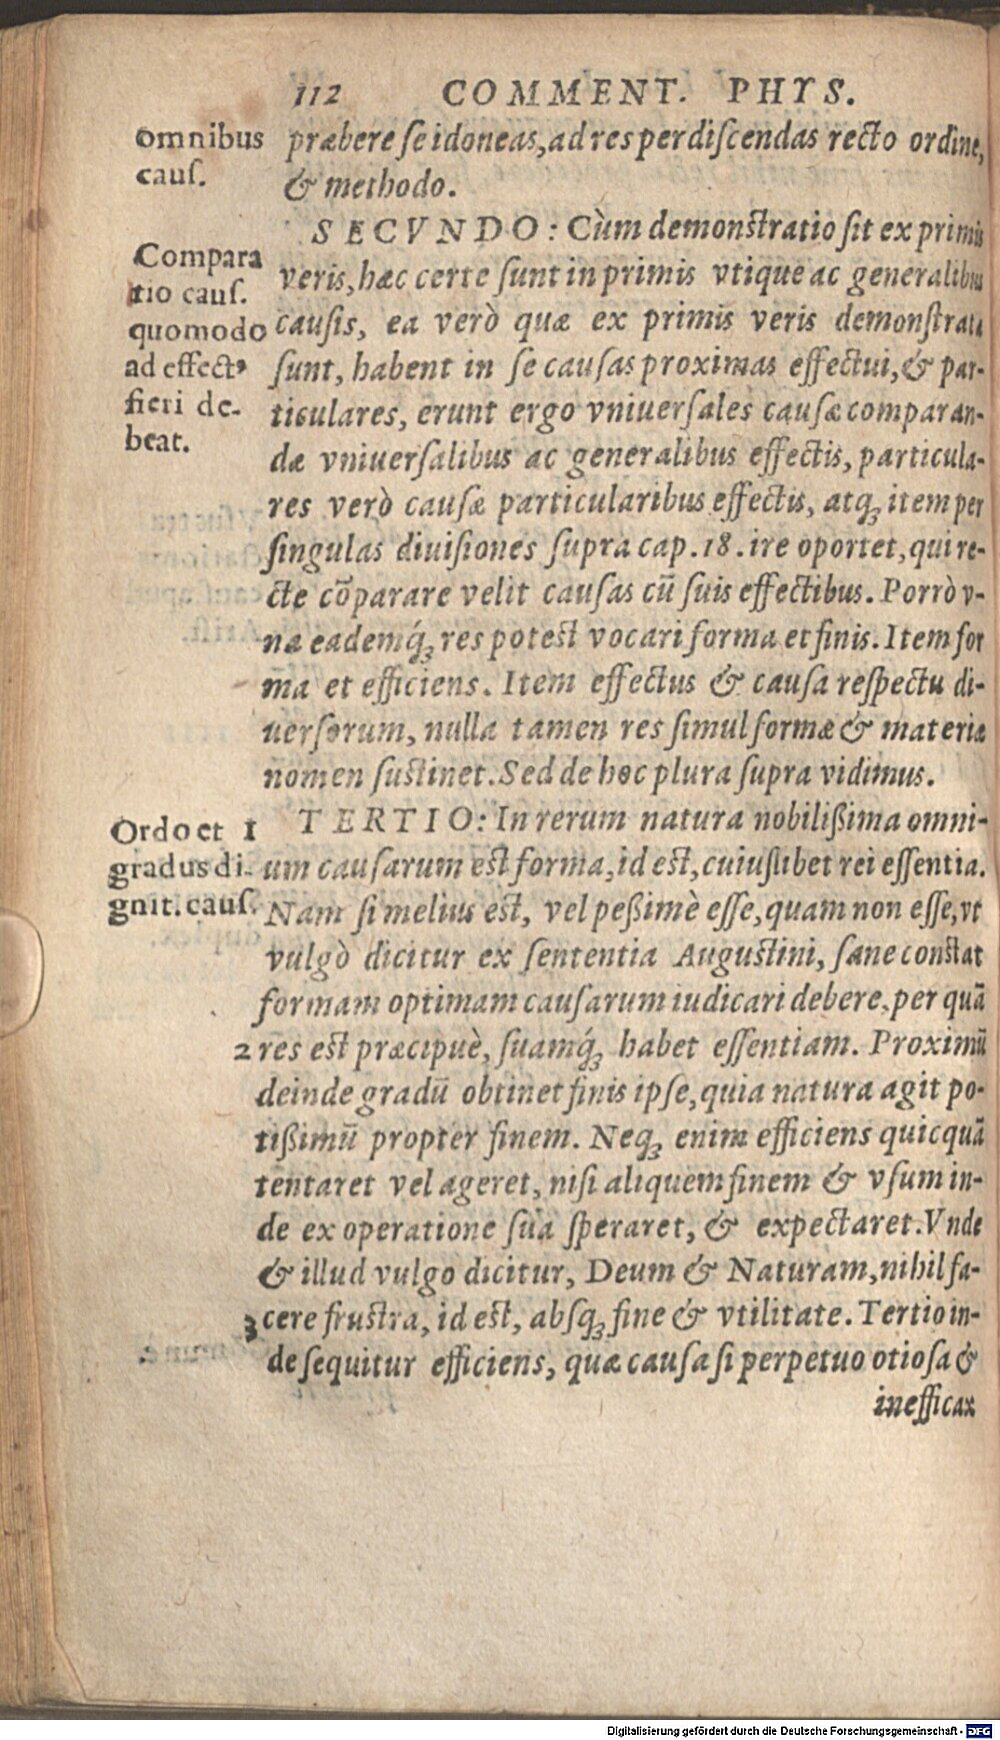 112 COMMENT. PHYS.
omnibus
caus.
præbere se idoneas, ad res perdiscendas recto ordine,
& methodo.
Compara
tio caus.
quomodo
ad effectꝰ
fieri de-
beat.
SECVNDO: Cùm demonstratio sit ex primis
veris, hæc certe sunt in primis vtique ac generalibus
causis, ea verò quæ ex primis veris demonstrata
sunt, habent in se causas proximas effectui, & par-
ticulares, erunt ergo vniuersales causæ comparan-
dæ vniuersalibus ac generalibus effectis, particula-
res verò causæ particularibus effectis, atq; item per
singulas diuisiones supra cap. 18. ire oportet, qui re-
cte cōparare velit causas cū suis effectibus. Porrò v-
na eademq́; res potest vocari forma et finis. Item for
ma et efficiens. Item effectus & causa respectu di-
uersorum, nulla tamen res simul formæ & materiæ
nomen sustinet. Sed de hoc plura supra vidimus.
Ordo et 1
gradus di-
gnit. caus.
TERTIO: In rerum natura nobilißima omni-
um causarum est forma, id est, cuiuslibet rei essentia.
Nam si melius est, vel peßimè esse, quam non esse, vt
vulgò dicitur ex sententia Augustini, sane constat
formam optimam causarum iudicari debere, per quā
2 res est præcipuè, suamq́; habet essentiam. Proximū
deinde gradū obtinet finis ipse, quia natura agit po-
tißimū propter finem. Neq; enim efficiens quicquā
tentaret vel ageret, nisi aliquem finem & vsum in-
de ex operatione sua speraret, & expectaret. Vnde
& illud vulgo dicitur, Deum & Naturam, nihil fa-
3 cere frustra, id est, absq; fine & vtilitate. Tertio in-
de sequitur efficiens, quæ causa si perpetuo otiosa &
inefficax
Digitalisierung gefördert durch die Deutsche Forschungsgemeinschaft - DFG